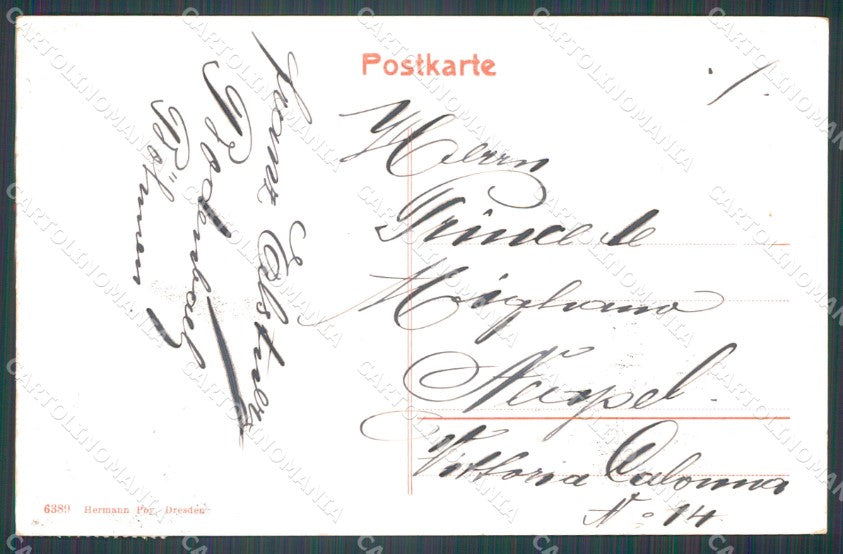 Postkarte
Franz Elstner
Bodenbach
Böhmen
Herrn
Prince de
Migliano
Neapel.
Vittoria Colonna
No 14
6389 Hermann Poy, Dresden
CARTOLINOMANIA